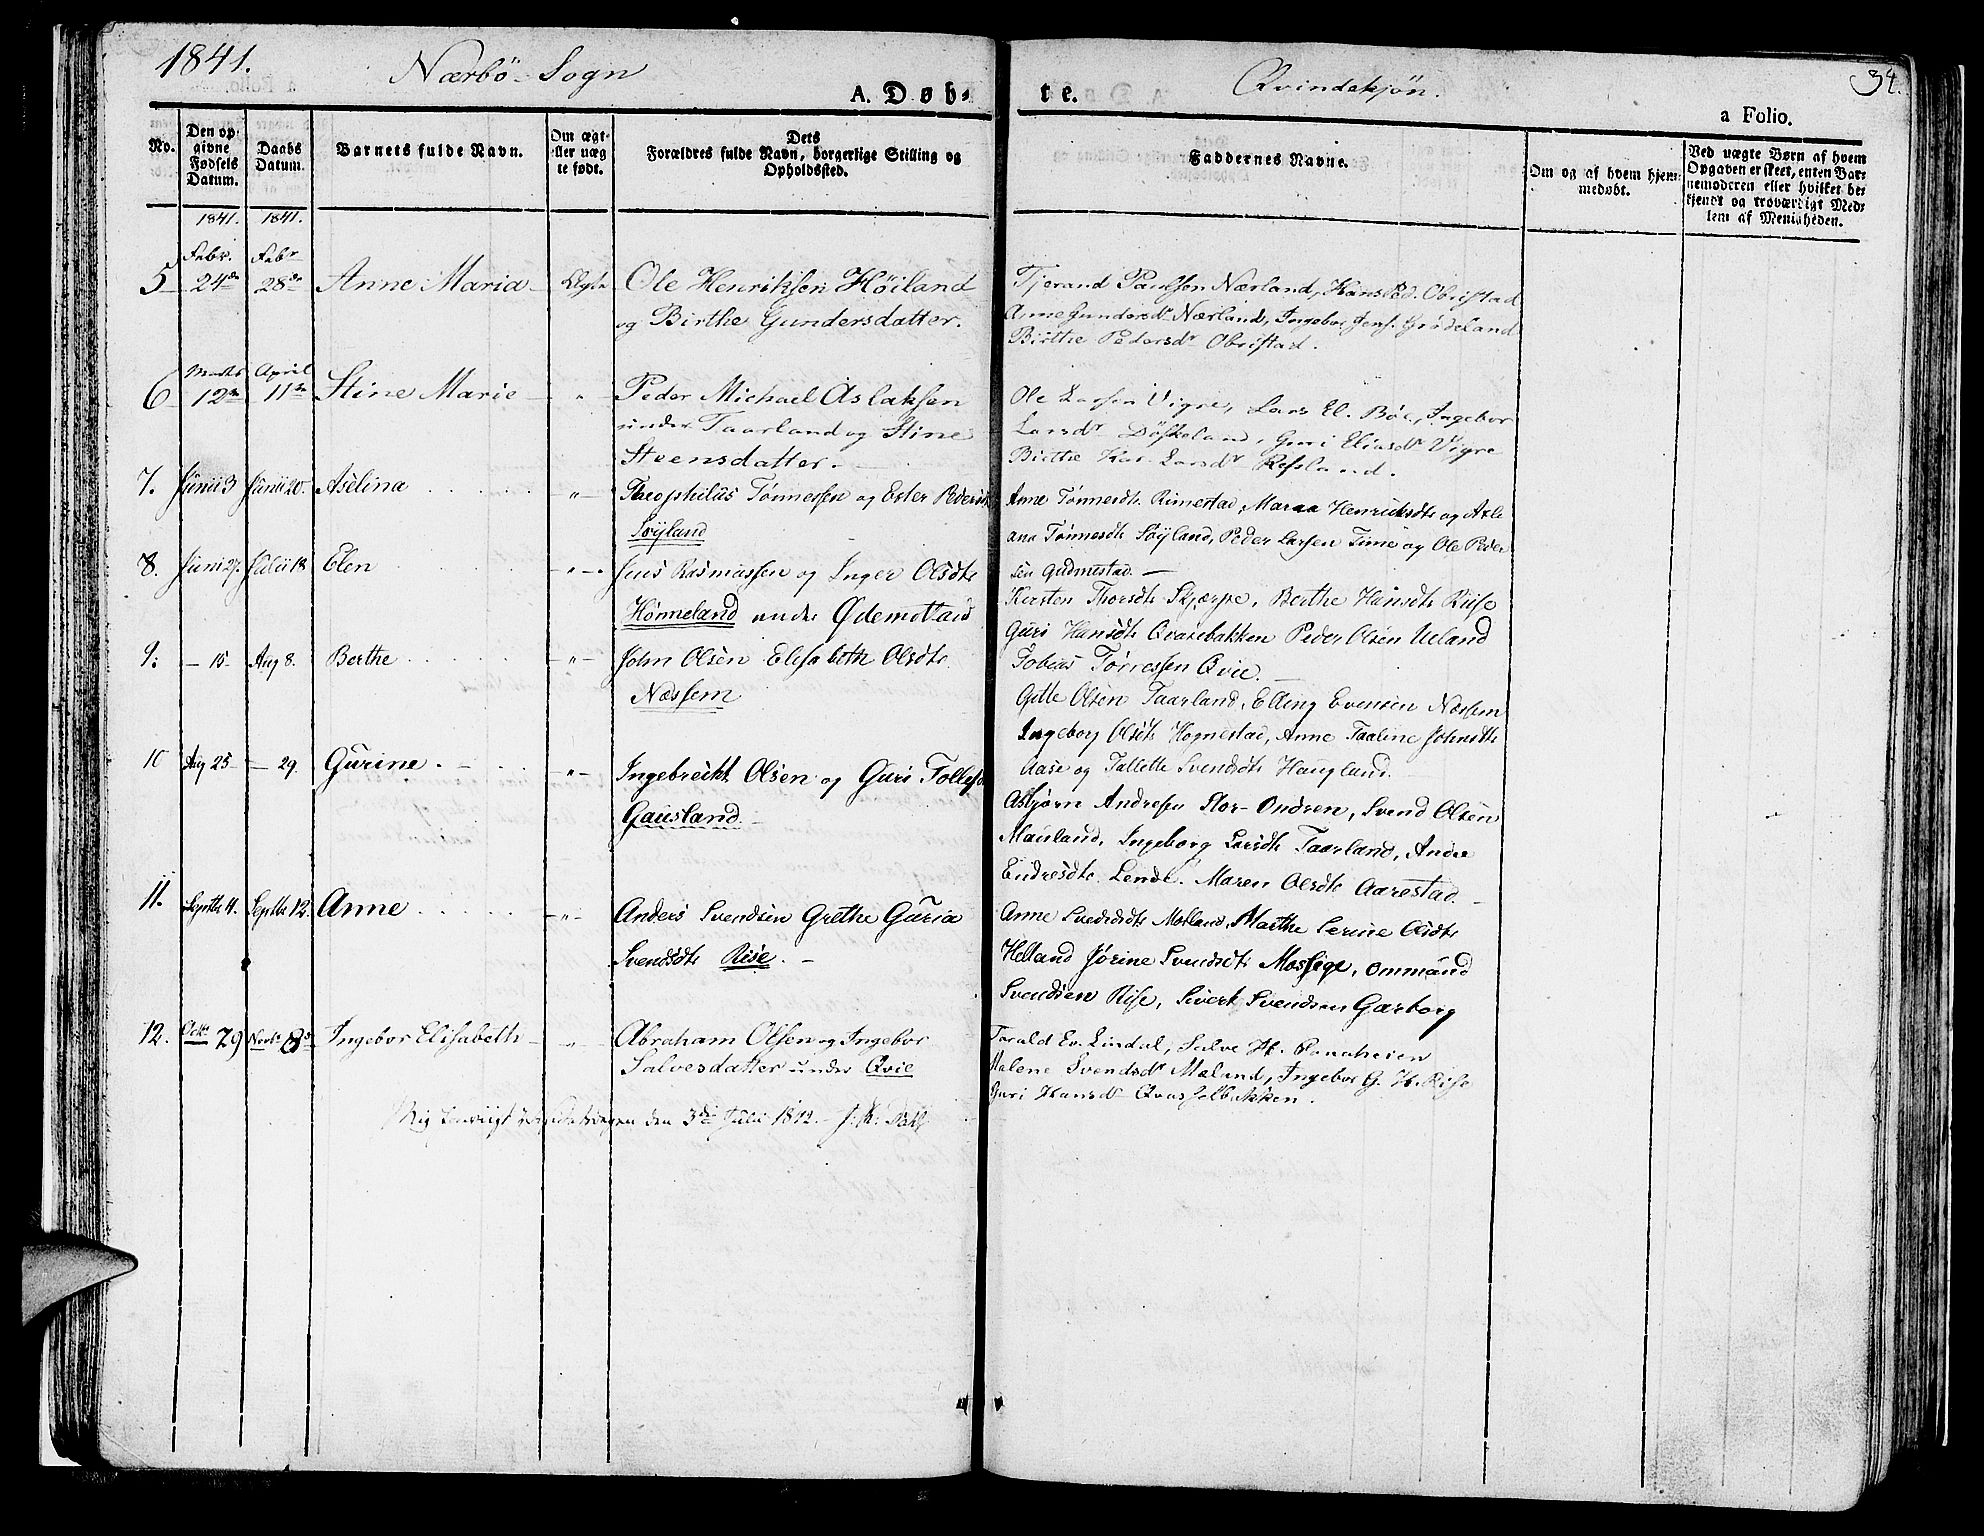 1841. Nærbö-Sogn
A. Döb-
te.
Qvindekjön.
34.
a Folio.
No.
Den op-
givne
Födsels
Datum.
Daabs
Datum.
Barnets fulde Navn.
Om ægt-
eller uæg
te födt.
Dets
Forældres fulde Navn, borgerlige Stilling og
Opholdssted.
Faddernes Navne.
Om og af hvem hjem-
medöbt.
Ved uægte Börn af hvem
Opgaven er skeet, enten Bar-
nemoderen eller hvilket be-
kjendt og troværdigt Med-
lem af Menigheden.
1841. 1841.
Febr. Febr
5 24de 28de Anne Maria Ægte Ole Henriksen Höiland
og Birthe Gundersdatter.
Tjerand Paulsen Nærland, Hans Ped. Obristad
Anne Gundersdr Nærland, Ingebor Jens. Grödeland
Birthe Pedersdr Obristad.
Marts April
6 12te 11te Stine Marie " Peder Michael Aslaksen
under Taarland og Stine
Steensdatter.
Ole Larsen Vigre, Lars El. Böe, Ingebor
Larsdr Döskeland, Guri Eliasdr Vigre
Birthe Kar. Larsdr Refsland.
7. Junii 3 Junii 20. Aselina " Theophilus Tönnessen og Ester Pedersdt
Söyland
Anne Tönnesdt Rimestad, Maren Henriksdt og Axeli
ana Tönnesdt Söyland, Peder Larsen Time og Ole Peder
sen Gudmestad.
8. Juni 27. Julii 18 Elen " Jens Rasmussen og Inger Olsdt
Hönneland under Ødemotland
Kersten Thorsdt Skjærpe, Berthe Hansdt Riise
Guri Hansdt Qvasebakken Peder Olsen Ueland
Tobias Törressen Qvie.
9. — 15 Aug 8. Berthe " John Olsen Elisabeth Olsdt.
Næssem
Gitte Olsen Taarland, Elling Evensen Næssem
Ingeborg Olsdt Hognestad, Anne Taaline Johnsdt
Aase og Tallette Svendsdt Haugland.
10 Aug 25 — 29. Gurine. " Ingebreckt Olsen og Guri Tollefsd
Gausland.
Asbjörn Andresen Stor-Ondren, Svend Olsen
Mauland, Ingeborg Larsdt Taarland, Andre
Endresdt. Lende. Maren Olsdt Aarestad.
11. Septbr 4. Septbr 12. Anne " Anders Svendsen Grethe Guria
Svendsdt Rise.
Anne Svendsdt Motland, Marthe Serine Olsdt
Helland Jörine Svendsdt Mossige, Ommund
Svendsen Rise, Sivert Svendsen Garborg
12. Octr 29 Novbr 8de Ingebor Elisabeth " Abraham Olsen og Ingebor
Salvesdatter under Qvie
Torald Ev. Lindal, Salve H. Panaheien
Malene Svendsdr Mæland, Ingebor G. H. Rise
Guri Hansdr Qvasselbakken.
den 3die Juli 1842.